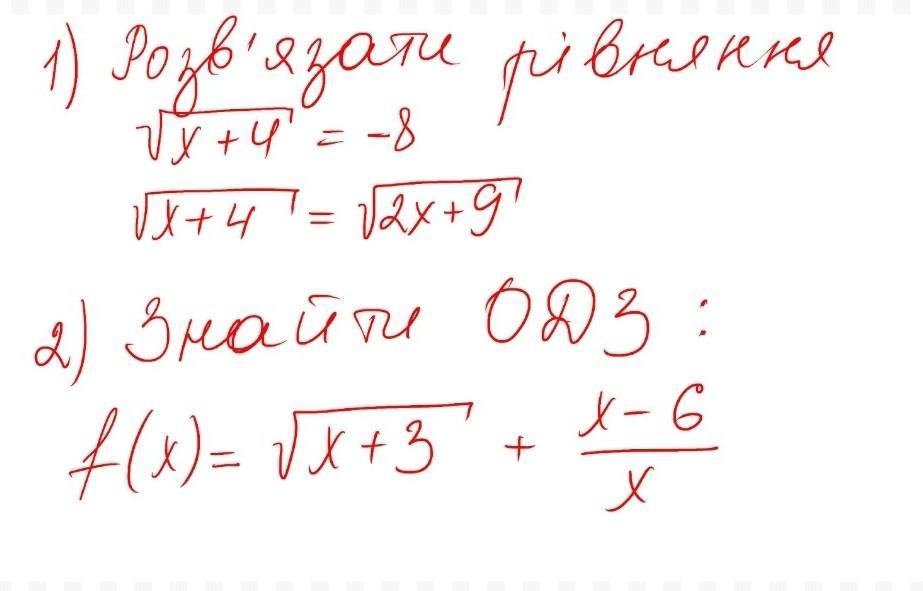 1) Розв'язати рівняння
√x+4 = -8
√x+4 = √2x+9
2) Знайти ОДЗ :
f(x)= √x+3 + x-6/x